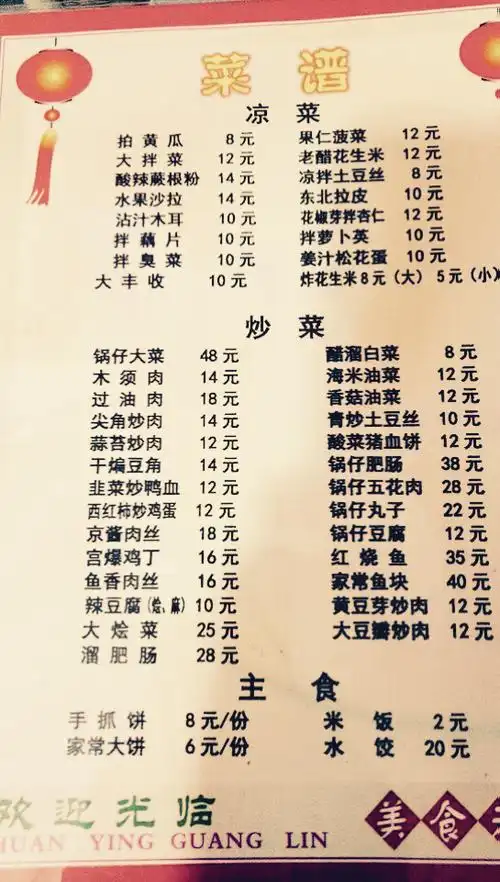 菜谱
凉菜
拍黄瓜 8元 果仁菠菜 12元
大拌菜 12元 老醋花生米 12元
酸辣蕨根粉 14元 凉拌土豆丝 8元
水果沙拉 14元 东北拉皮 10元
沾汁木耳 10元 花椒芽拌杏仁 12元
拌藕片 10元 拌萝卜英 10元
拌臭菜 10元 姜汁松花蛋 10元
大丰收 10元 炸花生米8元（大）5元（小）
炒菜
锅仔大菜 48元 醋溜白菜 8元
木须肉 14元 海米油菜 12元
过油肉 18元 香菇油菜 12元
尖角炒肉 14元 青炒土豆丝 10元
蒜苔炒肉 12元 酸菜猪血饼 12元
干煸豆角 14元 锅仔肥肠 38元
韭菜炒鸭血 12元 锅仔五花肉 28元
西红柿炒鸡蛋 12元 锅仔丸子 22元
京酱肉丝 18元 锅仔豆腐 12元
宫爆鸡丁 16元 红烧鱼 35元
鱼香肉丝 16元 家常鱼块 40元
辣豆腐(烩、麻) 10元 黄豆芽炒肉 12元
大烩菜 25元 大豆瓣炒肉 12元
溜肥肠 28元
主食
手抓饼 8元/份 米饭 2元
家常大饼 6元/份 水饺 20元
欢迎光临 美食
HUAN YING GUANG LIN